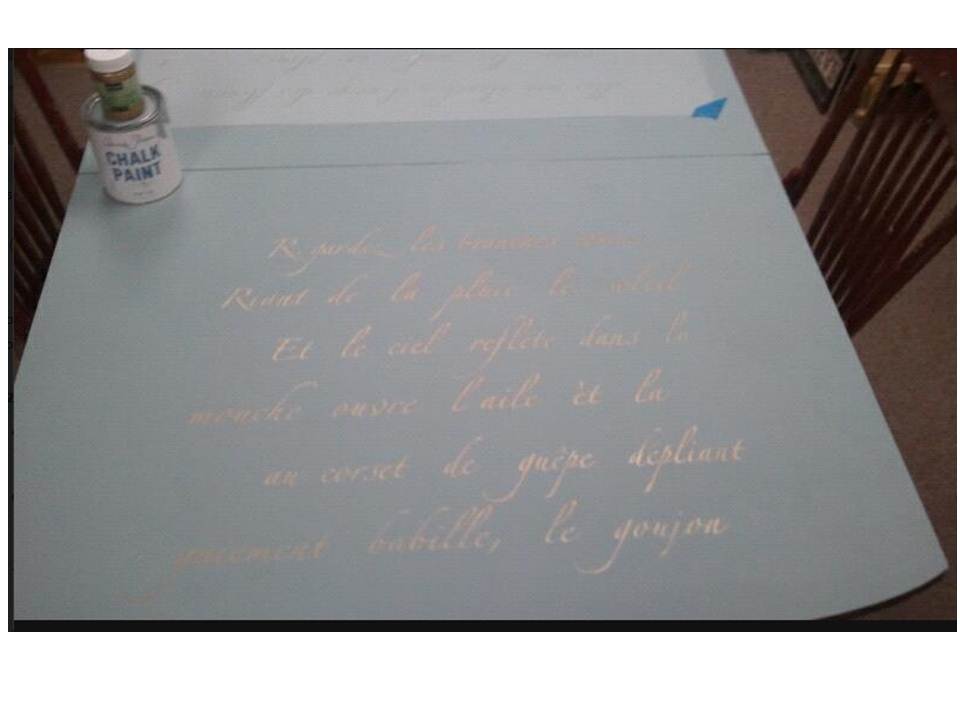 CHALK
PAINT
Regardez les branches
Riant de la pluie le soleil
Et le ciel reflète dans le
mouche ouvre l'aile èt la
au corset de guêpe dépliant
gaiement babille, le goujon